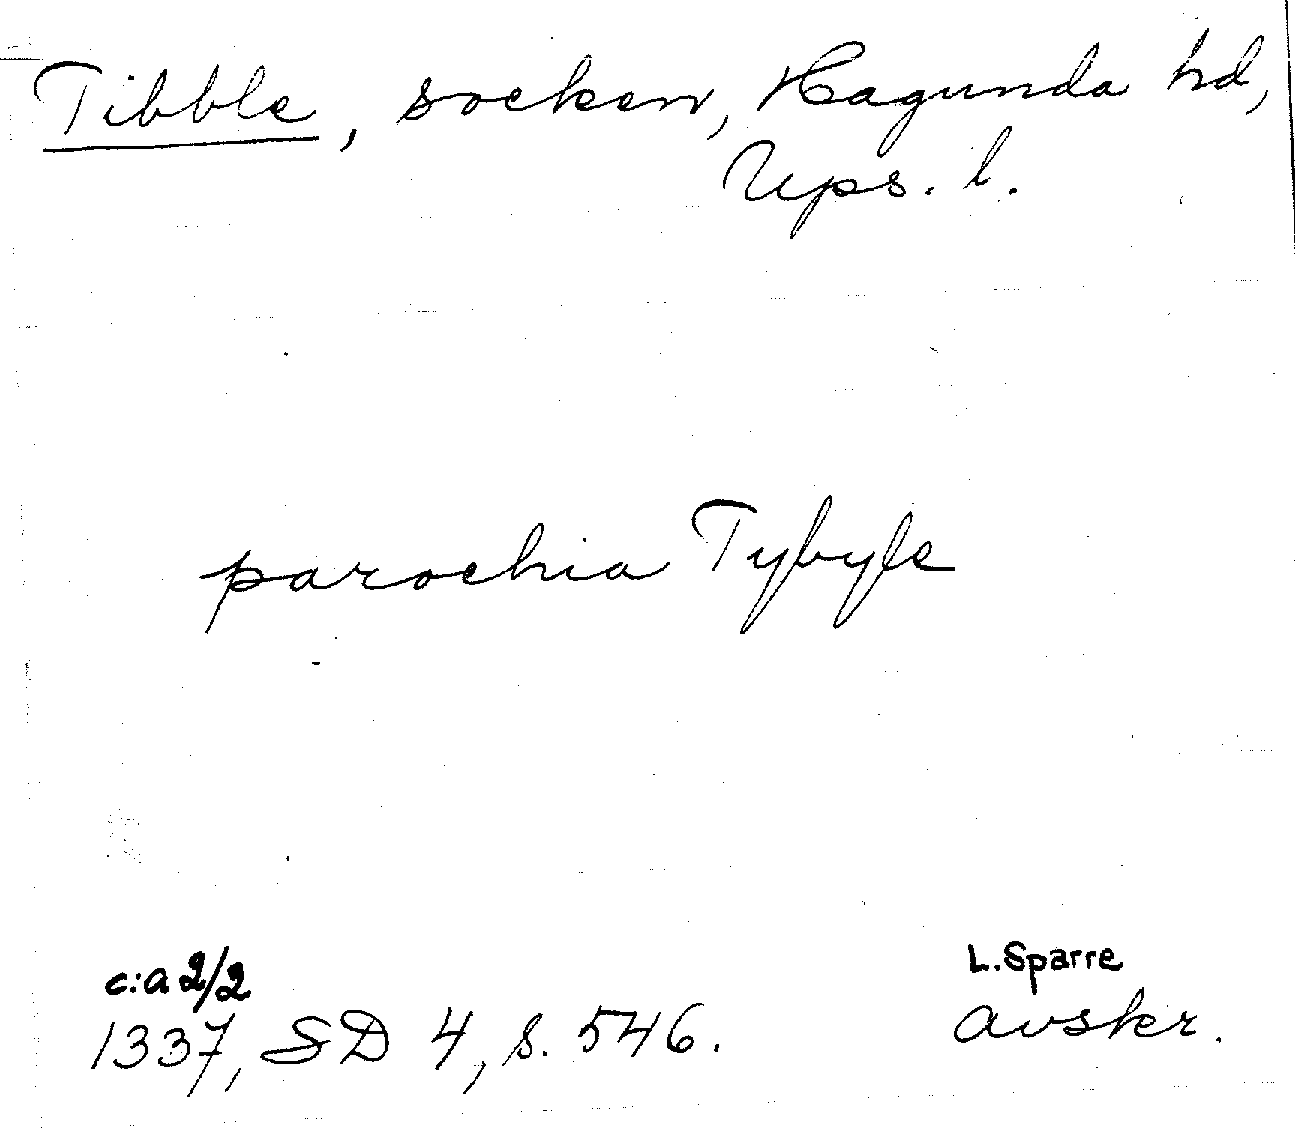 Tibble, socken, Hagunda hd,
Ups. l.
parochia Tybyle
c:a 2/2
1337, SD 4, s. 546.
L. Sparre
avskr.